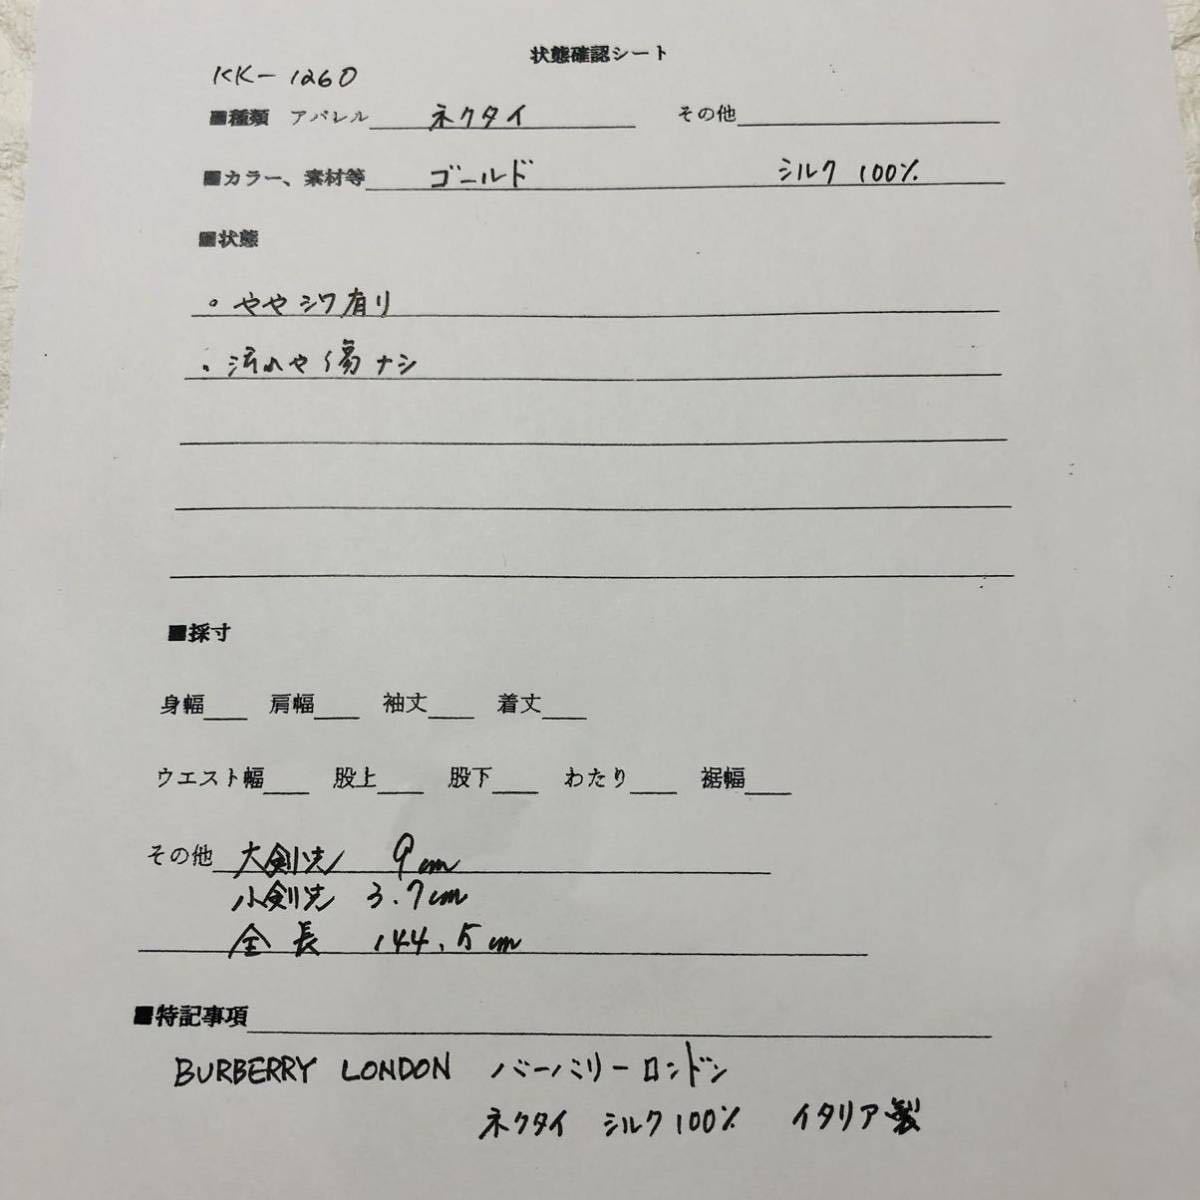 状態確認シート
KK-1260
■種類 アパレル ネクタイ その他
■カラー、素材等 ゴールド シルク 100%
■状態
。やや シワ 有り
。汚れや 傷 ナシ
■採寸
身幅 肩幅 袖丈 着丈
ウエスト幅 股上 股下 わたり 裾幅
その他 大剣先 9cm
小剣先 3.7cm
全長 144.5cm
■特記事項
BURBERRY LONDON バーバリーロンドン
ネクタイ シルク100% イタリア製